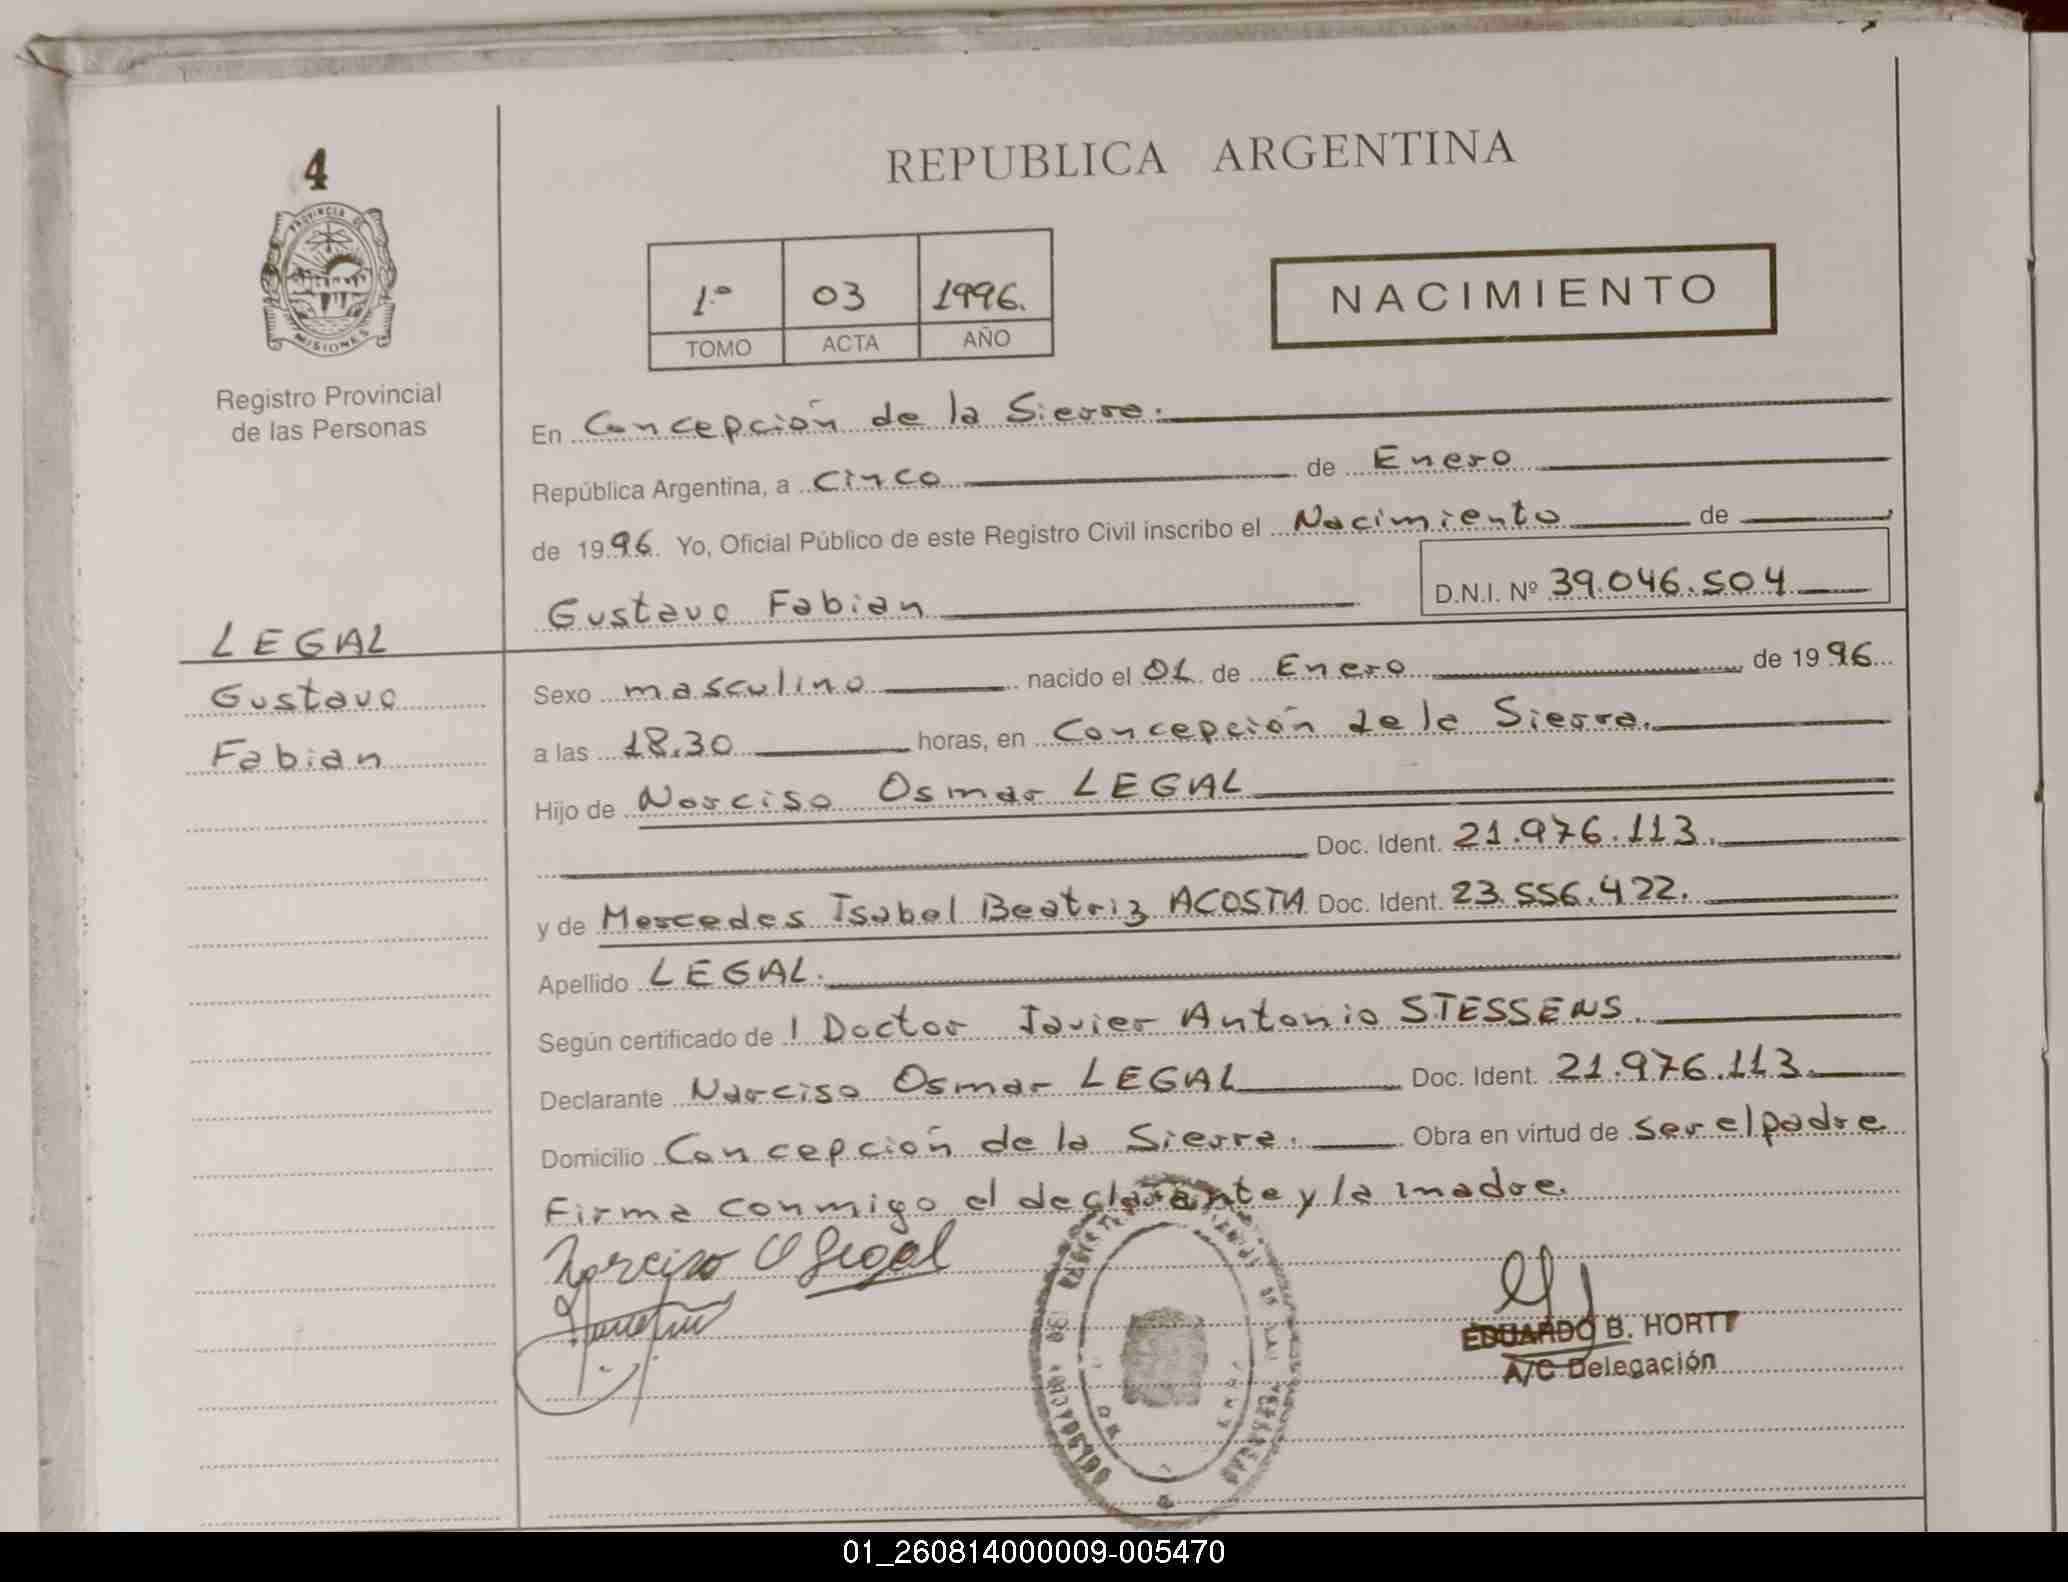 4
PROVINCIA DE
MISIONES
Registro Provincial
de las Personas
LEGAL
Gustavo
Fabian
REPUBLICA ARGENTINA
1º 03 1996.
TOMO ACTA AÑO
NACIMIENTO
En Concepción de la Sierra.
República Argentina, a Cinco de Enero
de 1996. Yo, Oficial Público de este Registro Civil inscribo el Nacimiento de
Gustavo Fabian D.N.I. Nº 39.046.504
Sexo masculino nacido el 01 de Enero de 1996
a las 18.30 horas, en Concepción de la Sierra.
Hijo de Narciso Osmar LEGAL
Doc. Ident. 21.976.113.
y de Mercedes Isabel Beatriz ACOSTA Doc. Ident. 23.556.422.
Apellido LEGAL.
Según certificado de l Doctor Javier Antonio STESSENS.
Declarante Narciso Osmar LEGAL Doc. Ident. 21.976.113.
Domicilio Concepción de la Sierra. Obra en virtud de ser el padre
Firma conmigo el declarante y la madre.
Narciso O Legal
EDUARDO B. HORTT
A/C Delegación
01_260814000009-005470